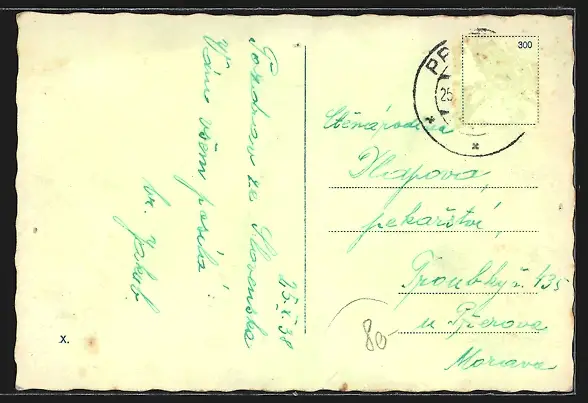 25.X.38
Pozdrav ze Slovenska
Vám všem posílá
br. Jakub.
X.
300
PR
25
Ctěná rodina
Hlapova,
pekařství,
Troubky č. 435
u Přerova
Morava
80-